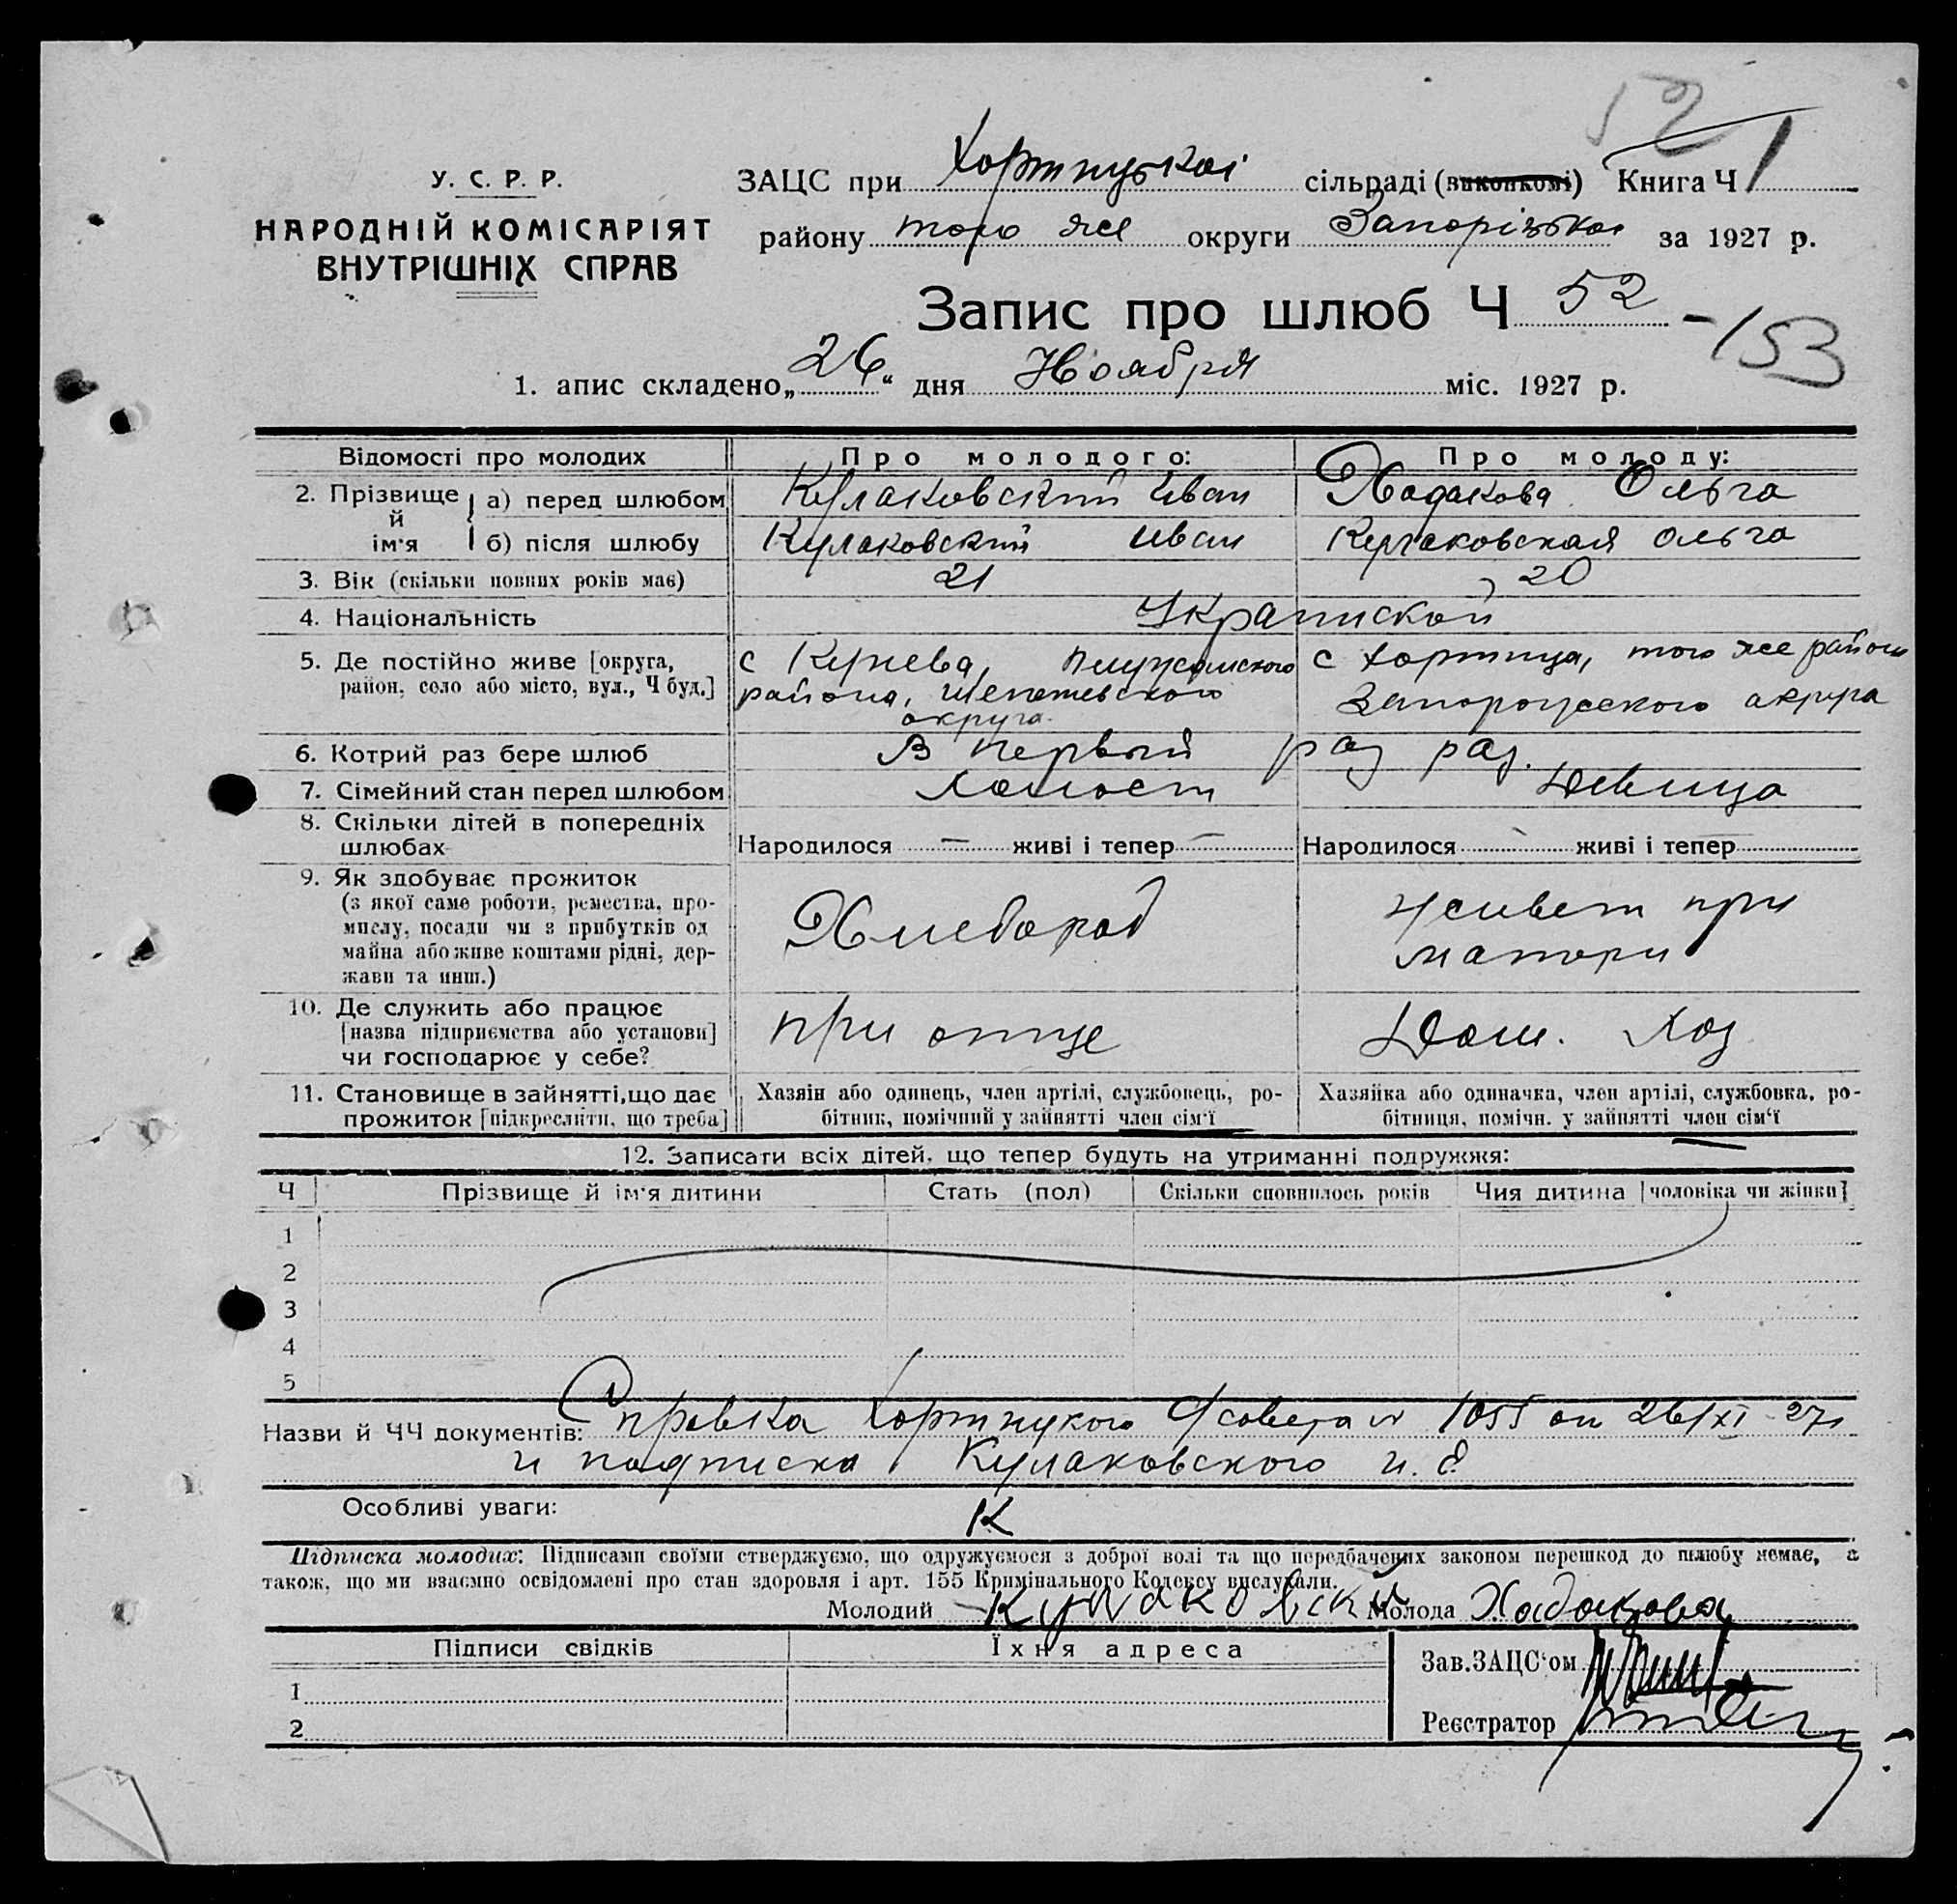 52
У. С. Р. Р.
НАРОДНІЙ КОМІСАРІЯТ
ВНУТРІШНІХ СПРАВ
ЗАЦС при Хортицькоі сільраді (виконкомі) Книга Ч 1
району того же округи Запорізькоі за 1927 р.
Запис про шлюб Ч 52 - 153
1. апис складено „26“ дня Ноября міс. 1927 р.
Відомості про молодих Про молодого: Про молоду:
2. Прізвище й ім'я а) перед шлюбом Кулаковский Иван Хадакова Ольга
б) після шлюбу Кулаковский Иван Кулаковская Ольга
3. Вік (скільки повних років має) 21 20
4. Національність Украинской
5. Де постійно живе [округа, район, село або місто, вул., Ч буд.]
с Кунева, Плужанского района, Шепетевского округа
с Хортица, того же района Запорожского округа
6. Котрий раз бере шлюб В первый раз раз.
7. Сімейний стан перед шлюбом Холост Девица
8. Скільки дітей в попередніх шлюбах Народилося — живі і тепер — Народилося - живі і тепер
9. Як здобуває прожиток
(з якої саме роботи, ремества, про-
мислу, посади чи з прибутків од
майна або живе коштами рідні, дер-
жави та инш.)
Хлебороб
живет при
матери
10. Де служить або працює
[назва підприємства або установи]
чи господарює у себе?
при отце
Дом. Хоз
11. Становище в зайнятті, що дає
прожиток [підкреслити, що треба]
Хазяін або одинець, член артілі, службовець, ро-
бітник, помічний у зайнятті член сім'ї
Хазяйка або одиначка, член артілі, службовка, ро-
бітниця, помічн. у зайнятті член сім'ї
12. Записати всіх дітей, що тепер будуть на утриманні подружжя:
Ч Прізвище й ім'я дитини Стать (пол) Скільки сповнилось років Чия дитина [чоловіка чи жінки]
1
2
3
4
5
Назви й ЧЧ документів: Справка Хортицкого с/совета № 1055 от 26/XI-27
и подписка Кулаковского и. Е
Особливі уваги: К
Підписка молодих: Підписами своїми стверджуємо, що одружуємося з доброї волі та що передбачених законом перешкод до шлюбу немає, а
також, що ми взаємно освідомлені про стан здоровля і арт. 155 Кримінального Кодексу вислухали.
Молодий Кулаковский Молода Хадакова
Підписи свідків Їхня адреса
Зав.ЗАЦС'ом
1
2
Реєстратор